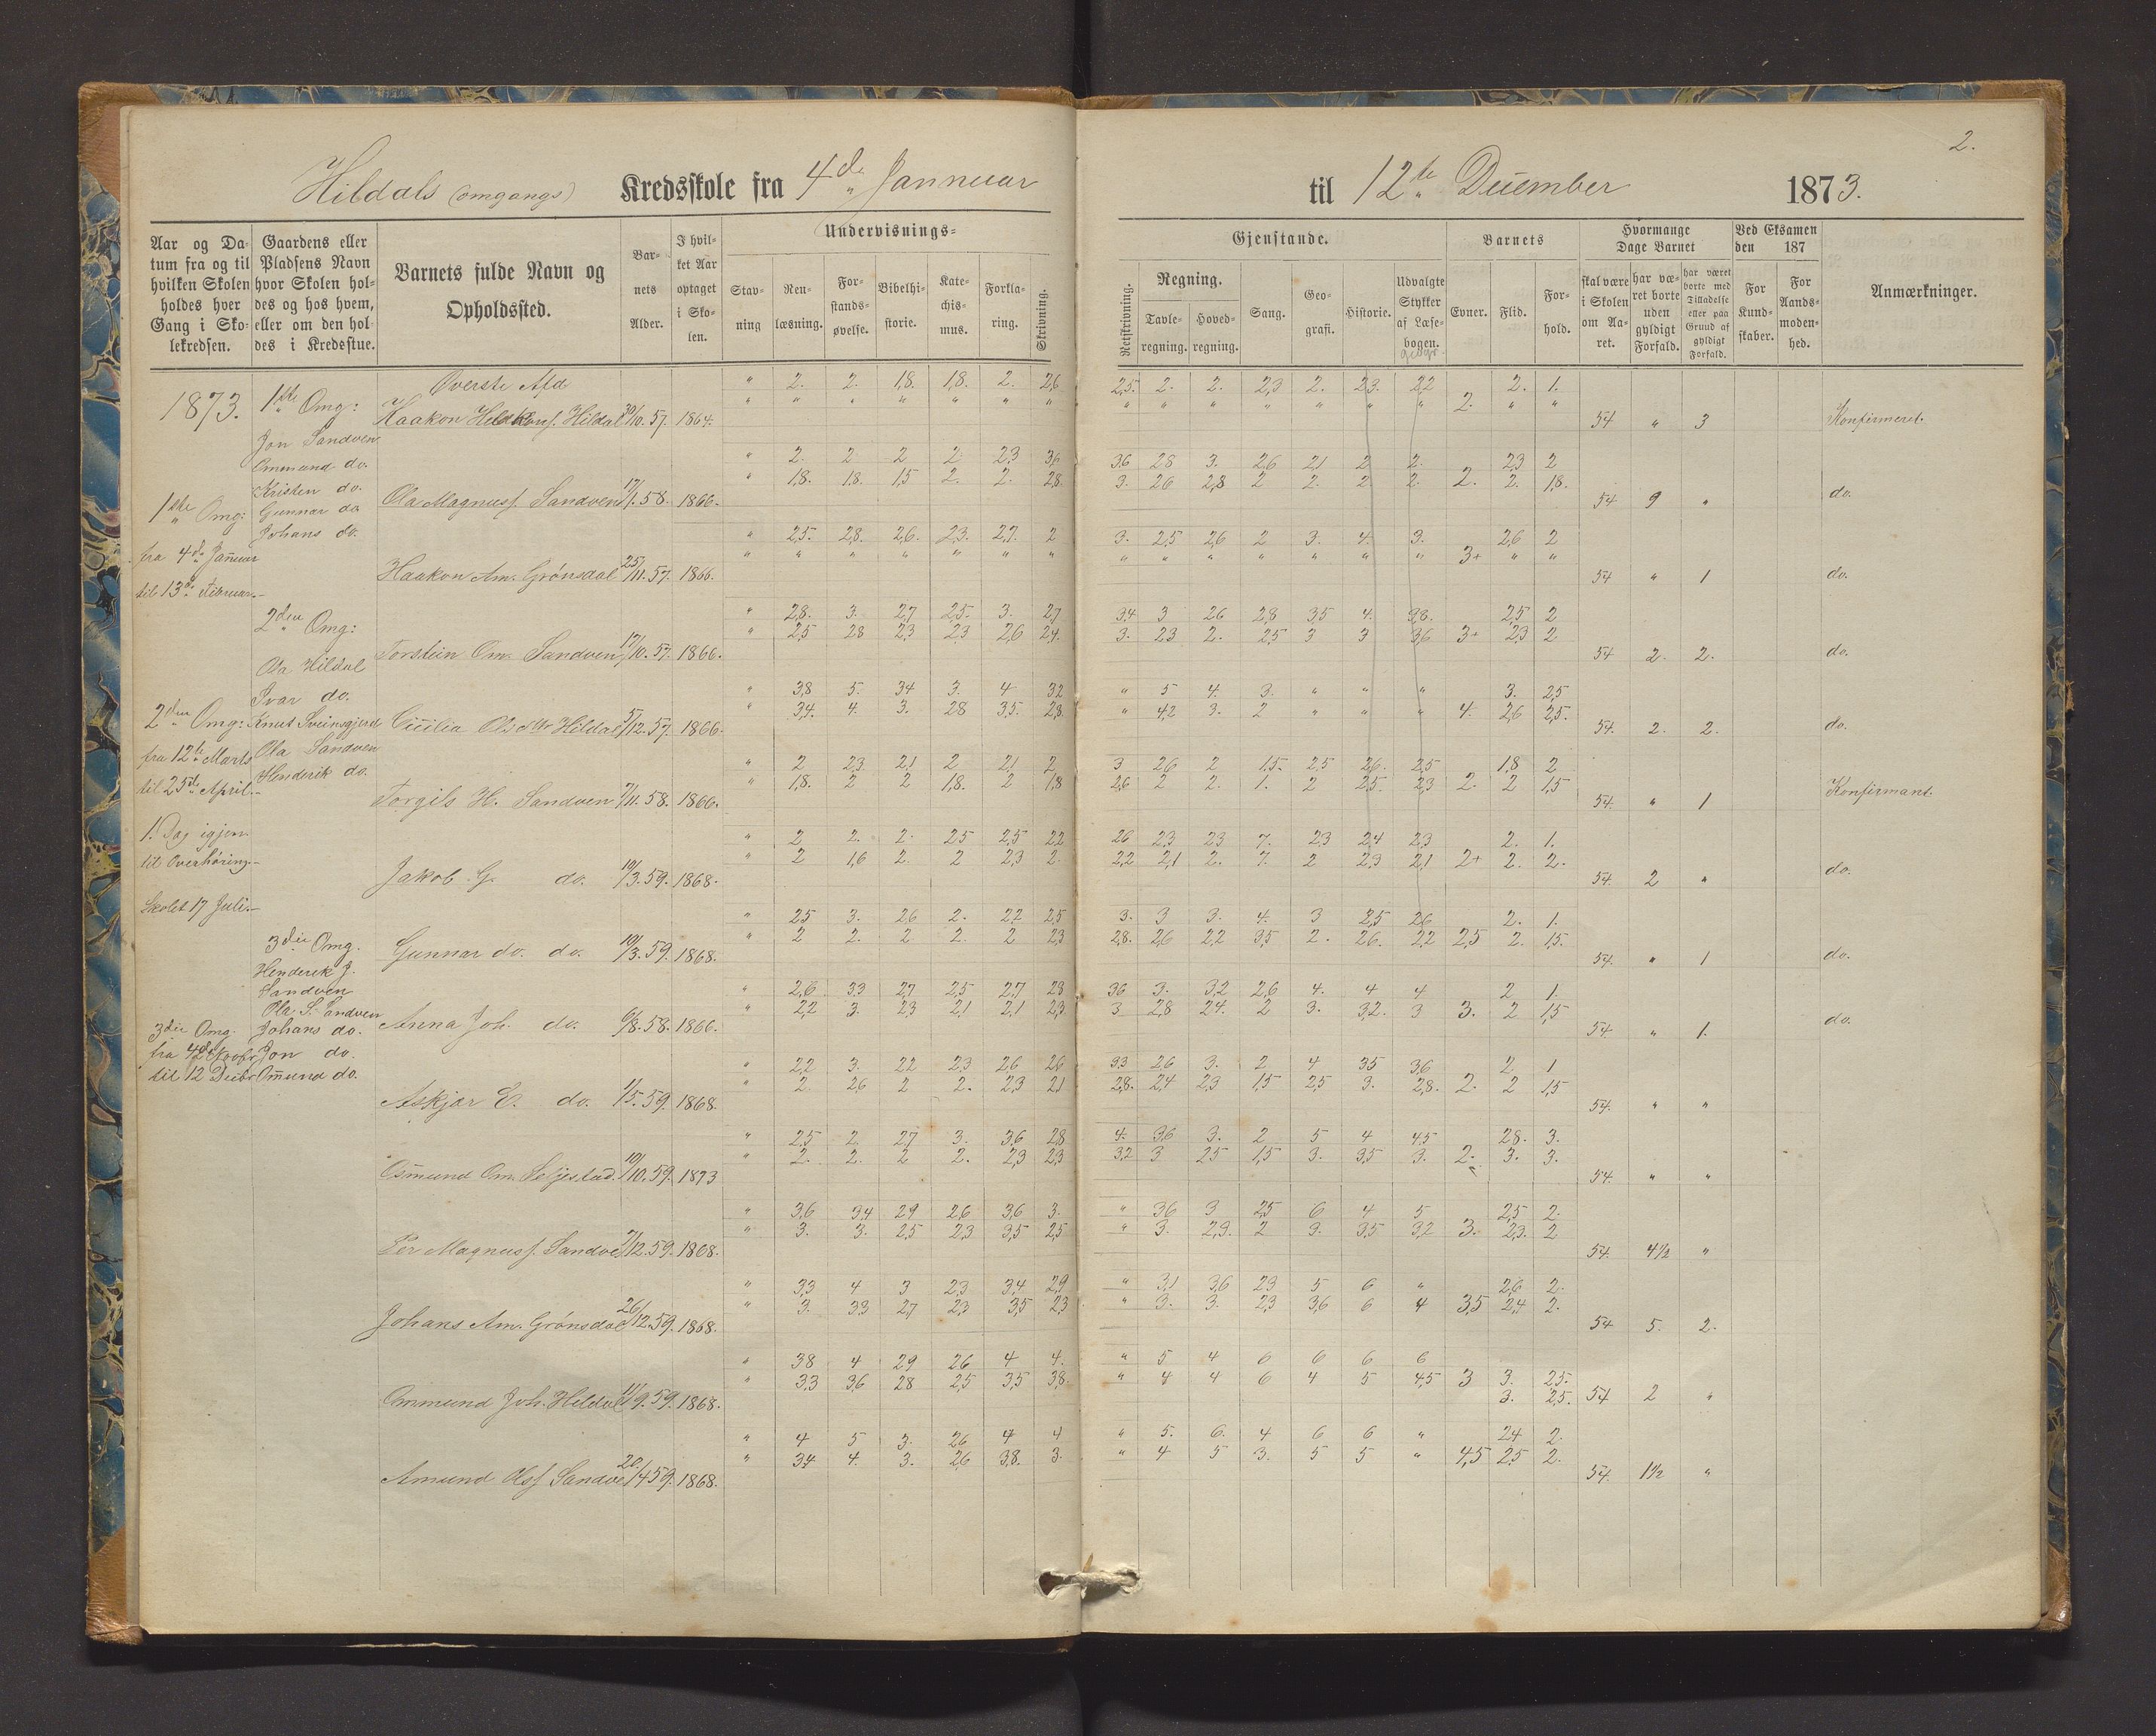 2.
Hildals (omgangs) Kredsskole fra 4de Jannuar til 12te December 1873.
Aar og Datum fra og til hvilken Skolen holdes hver Gang i Skolekredsen.
Gaardens eller Pladsens Navn hvor Skolen holdes og hos hvem, eller om den holdes i Kredsstue.
Barnets fulde Navn og Opholdssted.
Barnets Alder.
I hvilket Aar optaget i Skolen.
Undervisnings-
Stavning
Renlæsning.
Forstandsøvelse.
Bibelhistorie.
Katechismus.
Forklaring.
Skrivning.
Gjenstande.
Retskrivning.
Regning.
Tavleregning.
Hovedregning.
Sang.
Geografi.
Historie.
Udvalgte Stykker af Læsebogen.
Barnets
Evner.
Flid.
Forhold.
Hvormange Dage Barnet
skal være i Skolen om Aaret.
har været borte uden gyldigt Forfald.
har været borte med Tilladelse eller paa Grund af gyldigt Forfald.
Ved Eksamen den 187
For Kundskaber.
For Aandsmodenhed.
Anmærkninger.
1873.
1ste Omg:
fra 4de Januar
til 13de Februar.
2den Omg:
fra 12te Marts
til 25de April.
1. Dag igjen
til Overhøring.
Skolet 17 Juli.
3die Omg.
fra 4de Novbr
til 12 Decbr
1ste Omg:
Jon Sandven
Ommund do.
Kristen do.
Gunnar do
Johans do.
2den Omg:
Ola Hildal
Ivar do.
Knut Sveinsgjerd
Ola Sandven
Henderik do.
3die Omg.
Henderik J. Sandven
Ola S. Sandven
Johans do.
Jon do.
Omund do.
Øverste Afd
" 2. 2. 1,8. 1,8. 2. 2,6 2,5. 2. 2. 2,3 2. 2,3. 2,2 2. 1.
Haakon Hildal 30/10.57. 1864. 2. 54 " 3 Konfirmeret.
" 2. 2 2 2 2,3 3,6 3,6 2,8 3. 2,6 2,1 2 2. 2,3 2
" 1,8. 1,8. 1,5 2. 2. 2,8 3. 2,6 2,8 2 2. 2 2. 2. 2. 1,8.
Ola Magnuss. Sandven 17/1.58. 1866. 54 9 " do.
" 2,5. 2,8. 2,6. 2,3. 2,7. 2 3. 2,5 2,6 2 3. 4. 3. 2,6 2
Haakon Am. Grönsdal 25/11.57. 1866. 3+ 54 " 1 do.
" 2,8. 3. 2,7 2,5. 3. 2,7 3,4 3 2,6 2,8 3,5 4. 3,8. 2,5 2
" 2,5 2,8 2,3 2,3 2,6 2,4. 3. 2,3 2. 2,5 3 3 3,6 3+ 2,3 2
Torstein Om. Sandven 17/10.57. 1866. 54 2. 2. do.
" 3,8 5. 3,4 3. 4 3,2 " 5 4. 3. " " " 3. 2,5
" 3,4. 4. 3. 2,8 3,5. 2,8. " 4,2 3. 2 " " " 4. 2,6 2,5.
Cicilia Hildal 5/12.57. 1866. 54. 2. 2. do.
" 2 2,3 2,1 2 2,1 2 3 2,6 2 1,5. 2,5 2,6. 2,5 1,8 2
" 1,8. 2 2 1,8. 2 1,8 2,6 2 2. 1. 2 2,5. 2,3 2. 2 1,5
Torgils H. Sandven 7/11.58. 1866. 54. " 1 Konfirmant.
" 2 2. 2. 2,5 2,5 2,2 2,6 2,3 2,3 7. 2,3 2,4 2,3 2. 1.
" 2 1,6 2. 2 2,3 2. 2,2 2,1 2. 7. 2 2,3 2,1 2+ 2. 2.
Jakob G. do. 19/3.59. 1868. 54. 2 " do.
" 2,5 3. 2,6 2. 2,2 2,5 3. 3 3. 4. 3 2,5 2,6 2. 1.
" 2 2. 2 2. 2 2,3 2,8. 2,6 2,2 3,5 2. 2,6. 2,2 2,5 2. 1,5.
Gunnar do. do. 19/3.59. 1868. 54. " 1 do.
" 2,6 3,3 2,7 2,5 2,7 2,8 3,6 3. 3,2 2,6 4. 4 4 2 1.
" 2,2 3. 2,3 2,1 2,1 2,3 3 2,8 2,4. 2 3. 3,2. 3 3. 2 1,5
Anna Joh. do. 6/8.58. 1866. 54. " 1. do.
" 2,2 3. 2,2 2,3 2,6 2,6 3,3 2,6 3. 2 4 3,5 3,6 2 1
" 2 2,6 2 2. 2,3 2,1 2,8. 2,4 2,3 1,5 2,5 3. 2,8. 2. 2 1,5
Askjær E. do. 1/5.59. 1868. 54. " "
" 2,5 2. 2,7 3. 3,6 2,8 4. 3,6 3. 2 5 4 4,5 2,8. 3.
" 2. 2. 2 2. 2,3 2,3 3,2 3 2,5 1,5 3. 3,5 3. 2. 3. 3.
Osmund Om. Seljestad. 19/10.59. 1873 54. " "
" 3,6 3,4 2,9 2,6 3,6 3. " 3,6 3 2,5 6 4 5 2,5 2.
" 3. 3. 2,5 2,3 3,5 2,5 " 3. 2,9. 2 3. 3,5 3,2 3. 2,3. 2
Per Magnuss. Sandve 7/12.59. 1868. 54. 4½ "
" 3,3 4 3 2,3 3,4 2,9 " 3,1 3,6 2,3 5 6 " 2,6 2.
" 3. 3,3 2,7 2,3 3,5 2,3 " 3. 3. 2,3 3,6 6 4 3,5 2,4 2.
Johans Am. Grønsdal 26/12.59. 1868. 54 5. 2.
" 3,8 4 2,9 2,6 4 4. " 5 4 6 6 6 6
" 3,3 3,6 2,8 2,5 3,5 3,8. " 4 4 6 4 5 4,5 3 3. 2,5.
Ommund Joh. Hildal 11/9.59. 1868. 3. 2,5. 54 2 "
" 4 5 3. 2,6 4 4 " 5. 6. 4 6 6 " 2,4 2.
" 3,4 4. 3. 2,6 3,8. 3. " 4 5 3. 5 5 " 4,5 2,5 2.
Amund Olss Sandve 20/4.59. 1868. 54. 1½ "